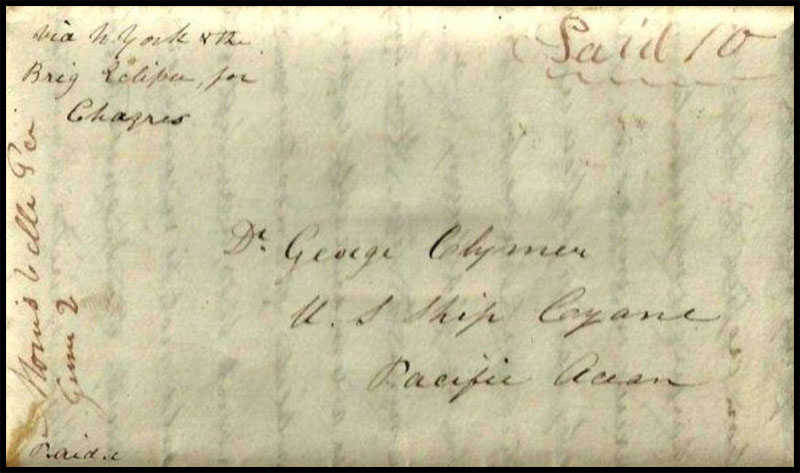 via N York & the
Brig Eclipse, for
Chagres
Paid 10
Dr. George Clymer
U. S Ship Cyane
Pacific Ocean
Morrisville Pa
June 2
Paid.